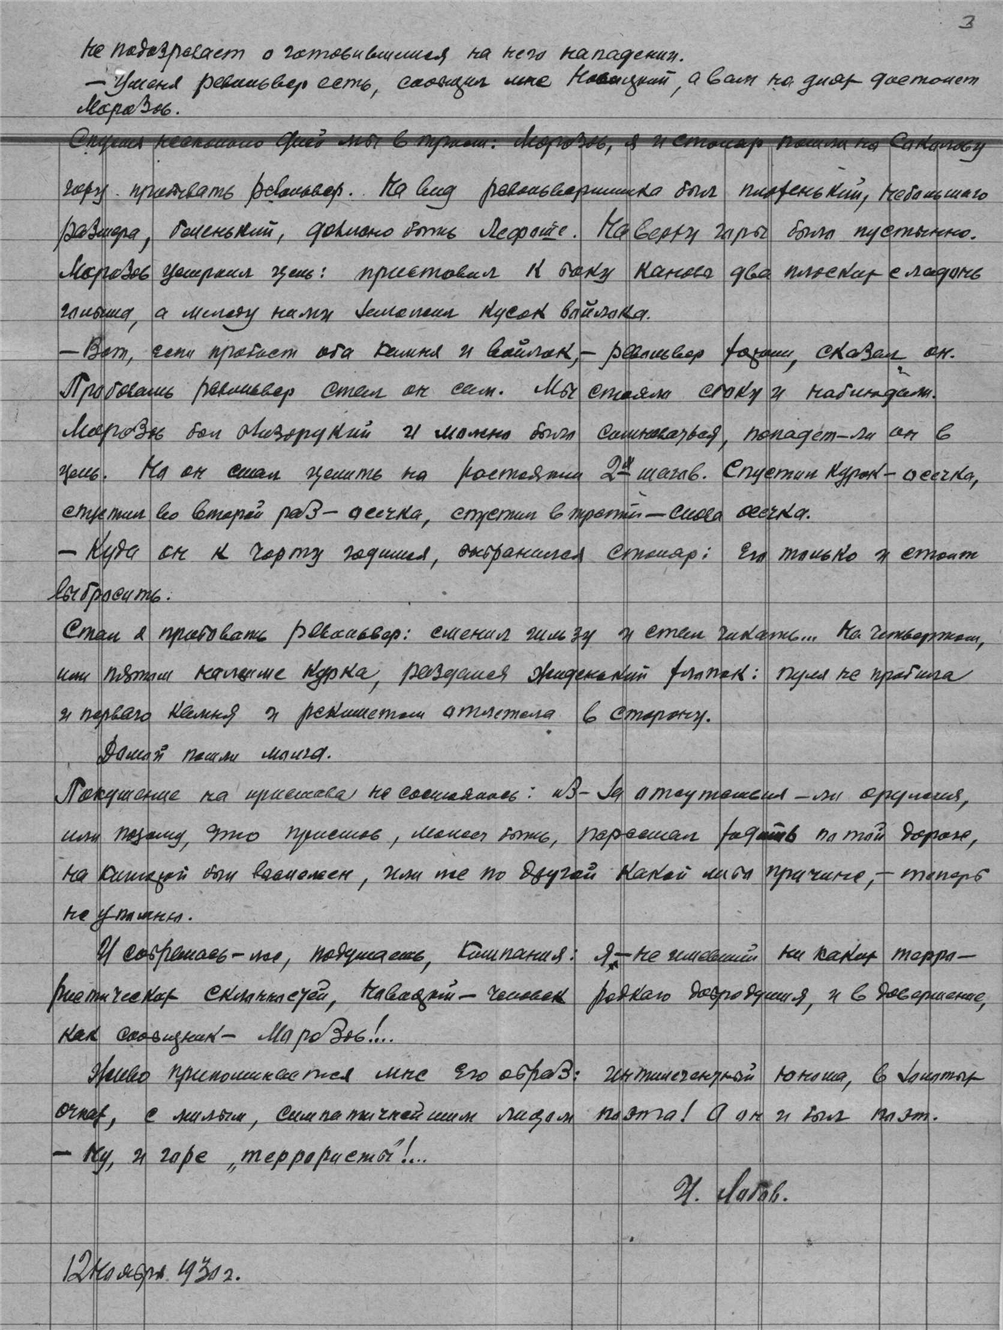 3
не подозревает о готовившимся на него нападении.
— У меня револьвер есть, сообщил мне Новицкий, а вам на днях достанет
Морозов.
Спустя несколько дней мы в троем: Морозов, я и столяр пошли на Соколову
гору пробывать револьвер. На вид револьверишка был плохенький, небольшого
размера, беленький, должно быть Лефоше. На верху горы было пустынно.
Морозов устроил цель: приставил к боку канавы два плоских с ладонь
голыша, а между ними заложил кусок войлока.
— Вот, если пробьет оба камня и войлок, — револьвер хорош, сказал он.
Пробовать револьвер стал он сам. Мы стояли сбоку и наблюдали.
Морозов был близорукий и можно было сомневаться, попадет-ли он в
цель. Но он стал целить на расстоянии 2х шагов. Спустил курок — осечка,
спустил во второй раз — осечка, спустил в третий — снова осечка.
— Куда он к чорту годился, выбранился столяр: его только и стоит
выбросить.
Стал я пробовать револьвер: сменил гильзу и стал чикать... На четвертом,
или пятом нажиме курка, раздался жиденький хлопок: пуля не пробила
и первого камня и рикошетом отлетела в сторону.
Домой пошли молча.
Покушение на пристава не состоялось: из-за отсутствия-ли оружия,
или потому, что пристав, может быть, перестал ходить по той дороге,
на которой был возможен, или же по другой какой либо причине, — теперь
не упомню.
И собралась-же, подумаешь, компания: я — не имевший ни каких терро-
ристических склонностей, Новицкий — человек редкого добродушия, и в довершение,
как сообщник — Морозов!...
Живо припоминается мне его образ: интеллигентный юноша, в золотых
очках, с милым, симпатичнейшим лицом поэта! А он и был поэт.
— Ну, и горе „террористы"!...
12 ноября 1930 г.